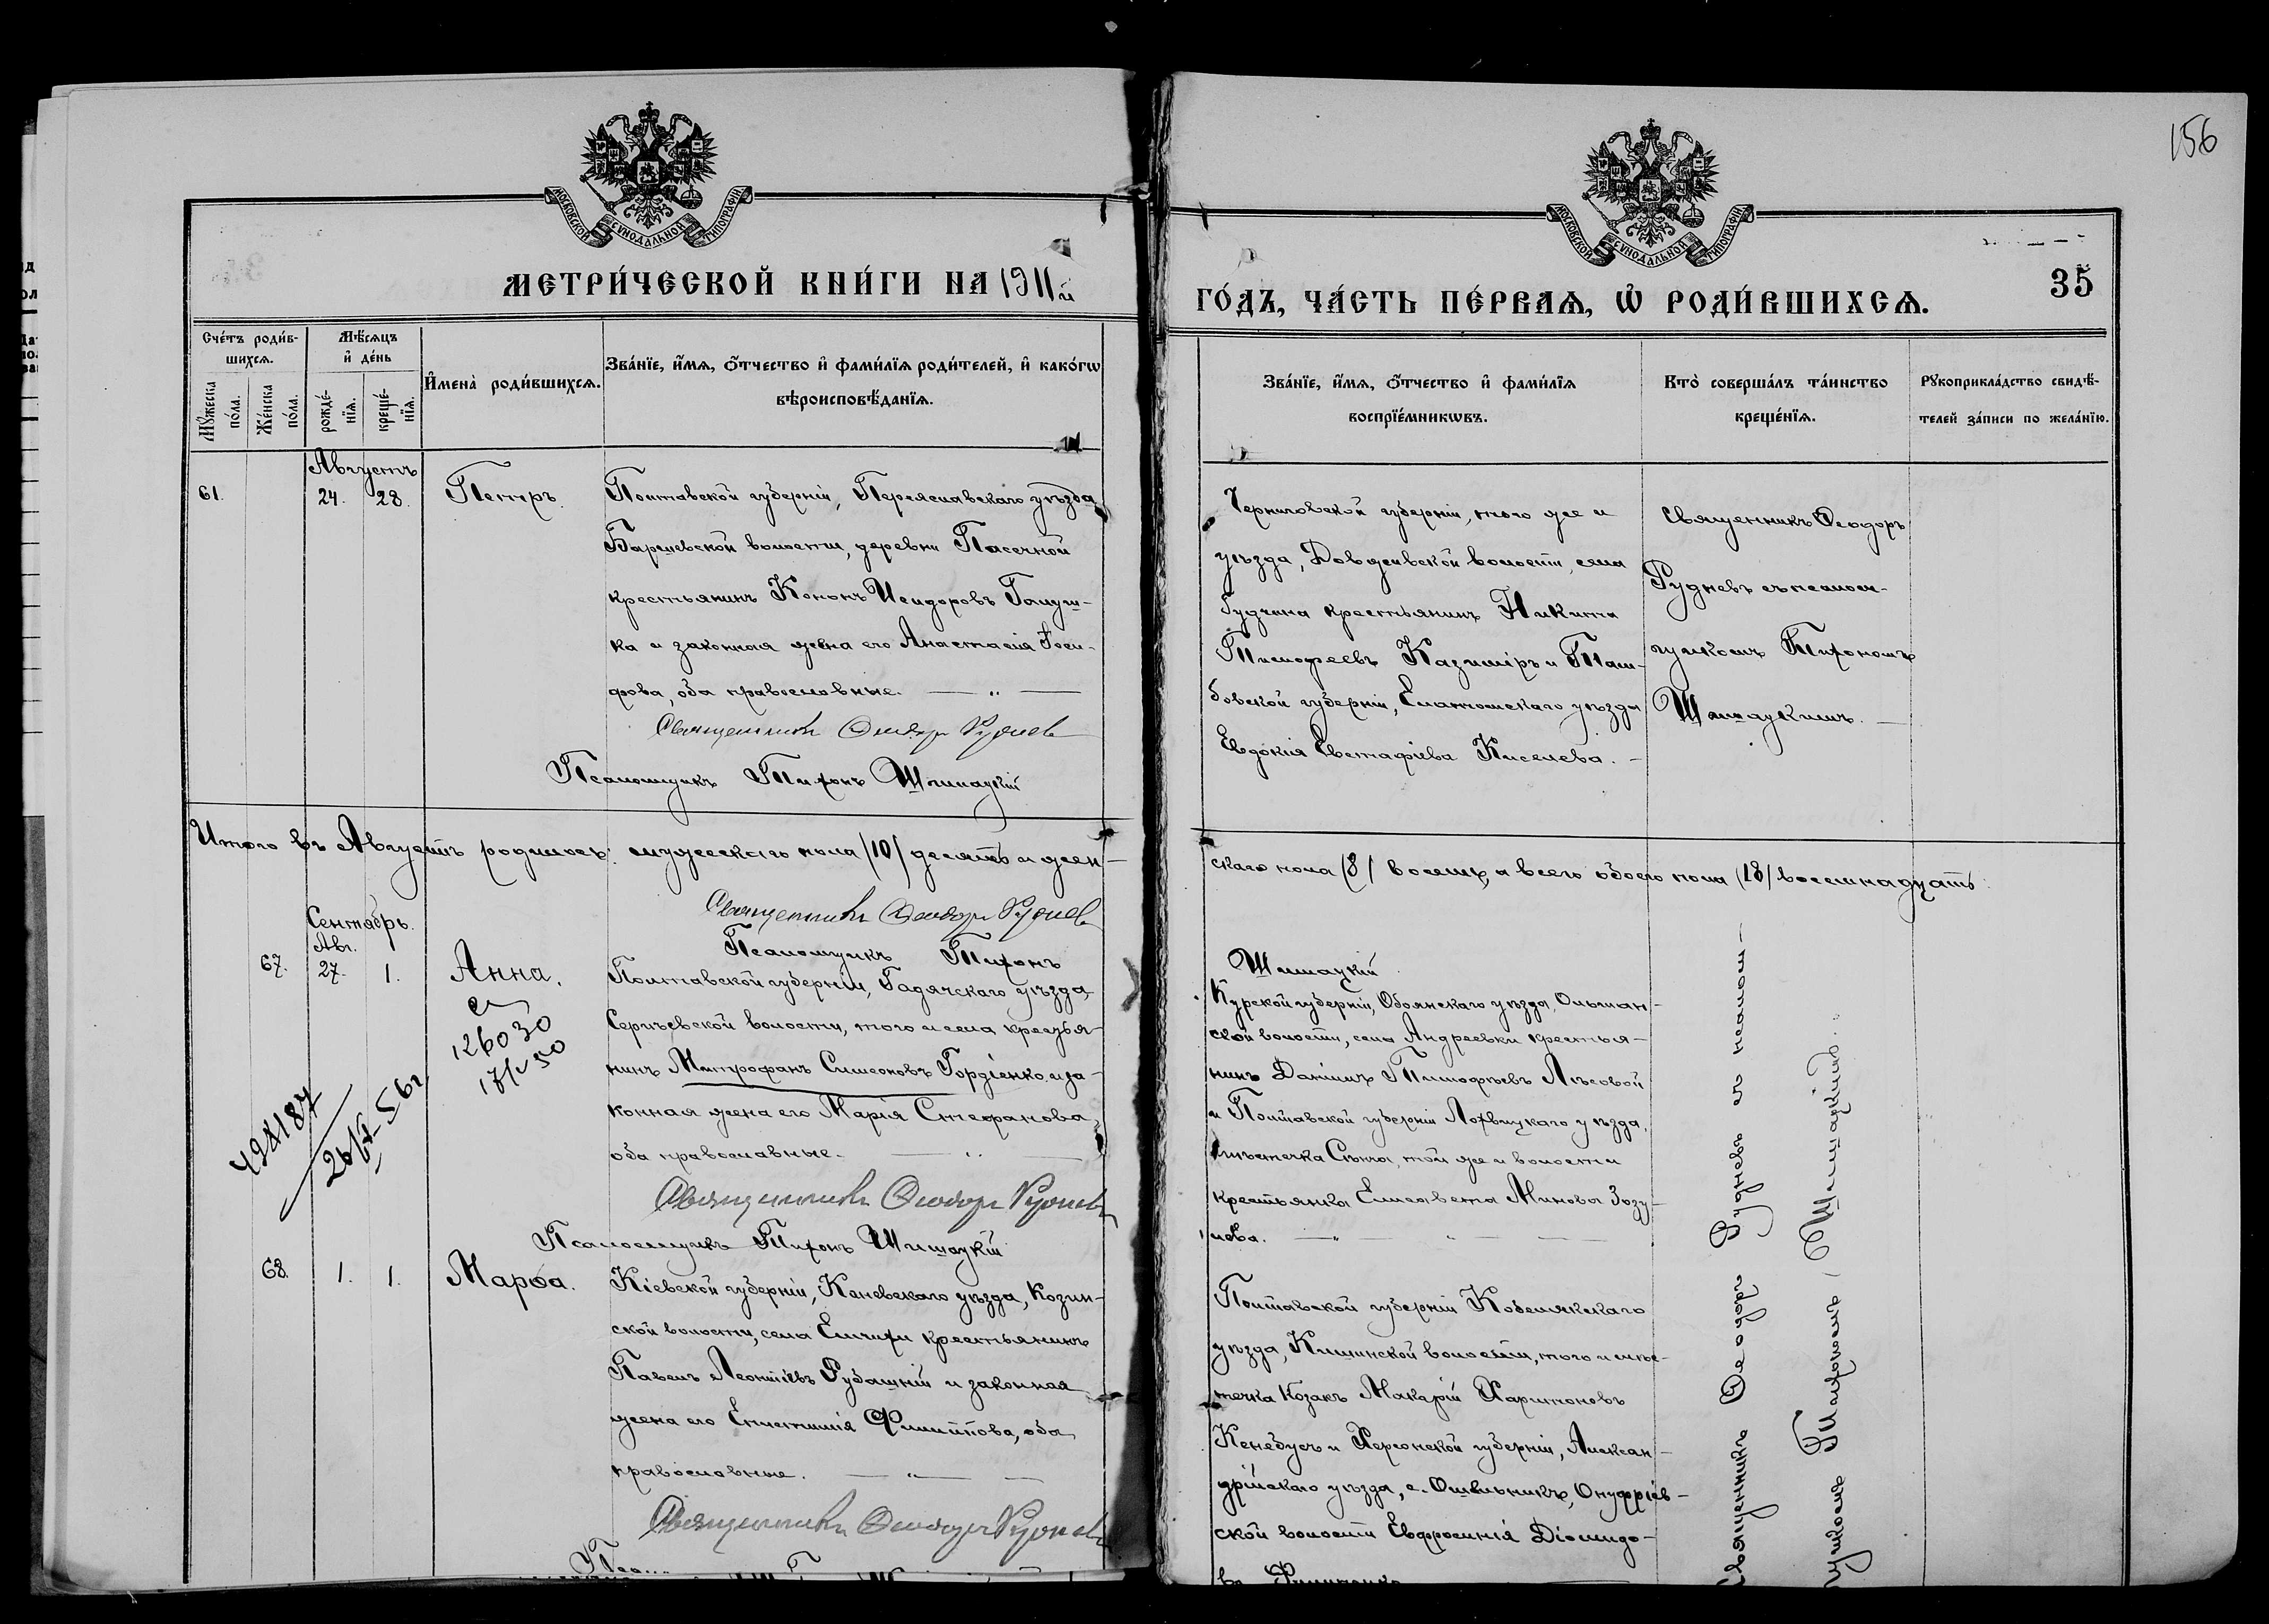 156
МОСКОВСКОЙ СѴНОДАЛЬНОЙ ТИПОГРАФІИ
МОСКОВСКОЙ СѴНОДАЛЬНОЙ ТИПОГРАФІИ
МЕТРИ́ЧЕСКОЙ КНИ́ГИ НА 1911й
ГО́ДЪ, ЧА́СТЬ ПЕ́РВАѦ, Ѡ҆ РОДИ́ВШИХСѦ.
35
Сче́тъ роди́вшихсѧ.
Мꙋ́жеска по́ла.
Же́нска по́ла.
Мѣ́сѧцъ и҆ де́нь
рожде́нїѧ.
креще́нїѧ.
И҆мена̀ роди́вшихсѧ.
Зва́нїе, и҆́мѧ, ѻ҆́тчество и҆ фами́лїѧ роди́телей, и҆ како́гѡ
вѣроисповѣ́данїѧ.
Зва́нїе, и҆́мѧ, ѻ҆́тчество и҆ фами́лїѧ
воспрїе́мникѡвъ.
Кто̀ соверша́лъ та́инство
креще́нїѧ.
Рꙋкоприкла́дство свидѣ́-
телей за́писи по жела́нїю.
Августъ
61. 24. 28. Петръ.
Полтавской губерніи, Переяславскаго уѣзда
Барышевской волости, деревни Пасечной
крестьянинъ Кононъ Исидоровъ Галуш-
ка и законная жена его Анастасія Іоси-
фова, оба православные.
Священникъ Ѳеодоръ Руднев
Псаломщикъ Тихонъ Шишацкій
Черниговской губерніи, того же и
уѣзда, волости, села
крестьянинъ Никита
Тимофеевъ Казиміръ и Там-
бовской губерніи, Елатомскаго уѣзда
Евдокія Евстафіева Киселева.
Священникъ Ѳеодоръ
Рудневъ съ псалом-
щикомъ Тихономъ
Шишацкимъ.
Итого въ Августѣ родилось: мужескаго пола (10) десять и жен-
скаго пола (8) восемь, а всего обоего пола (18) восемнадцать.
Священникъ Ѳеодоръ Руднев
Псаломщикъ Тихонъ
Шишацкій
Сентябрь.
Авг.
67. 27. 1. Анна.
126030
17/V 50
498187
26/V-56г
Полтавской губерніи, Гадячскаго уѣзда,
Сергѣевской волости, того и села крестья-
нинъ Митрофанъ Симеоновъ Гордіенко и за-
конная жена его Марія Стефанова,
оба православные.
Священникъ Ѳеодоръ Руднев
Псаломщикъ Тихонъ Шишацкій
Курской губерніи, Обоянскаго уѣзда, Ольшан-
ской волости, села Андреевки крестья-
нинъ Даніилъ Тимофѣевъ Лѣсовой
и Полтавской губерніи Лохвицкаго уѣзда,
мѣстечка Сѣнча, той же и волости
крестьянка Елисавета Минова Зозу-
лева.
68. 1. 1. Марѳа.
Кіевской губерніи, Каневскаго уѣзда, Козин-
ской волости, села Емчихи крестьянинъ
Павелъ Леонтіевъ Рубашній и законная
жена его Епистимія Филиппова, оба
православные.
Священникъ Ѳеодоръ Руднев
Полтавской губерніи Кобелякскаго
уѣзда, Кишинской волости, того и мѣс-
течка козакъ Макарій Харитоновъ
Кенебусъ и Херсонской губерніи, Алексан-
дрійскаго уѣзда, с. Онуфріев-
ской волости Евфросинія Діомидо-
Священникъ Ѳеодоръ Рудневъ съ псалом-
щикомъ Тихономъ Шишацкимъ.